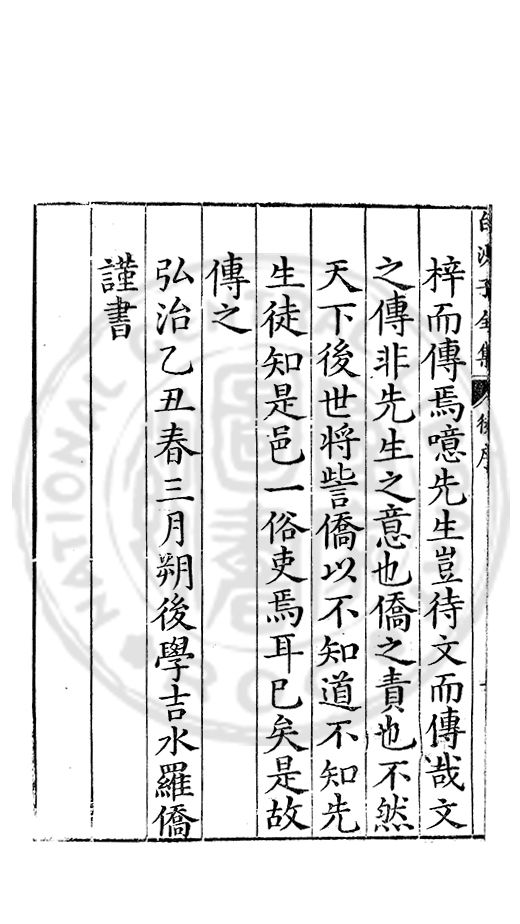 白沙子全集 後序
梓而傳焉噫先生豈待文而傳哉文
之傳非先生之意也僑之責也不然
天下後世將訾僑以不知道不知先
生徒知是邑一俗吏焉耳已矣是故
傳之
弘治乙丑春三月朔後學吉水羅僑
謹書
NATIONAL CENTRAL